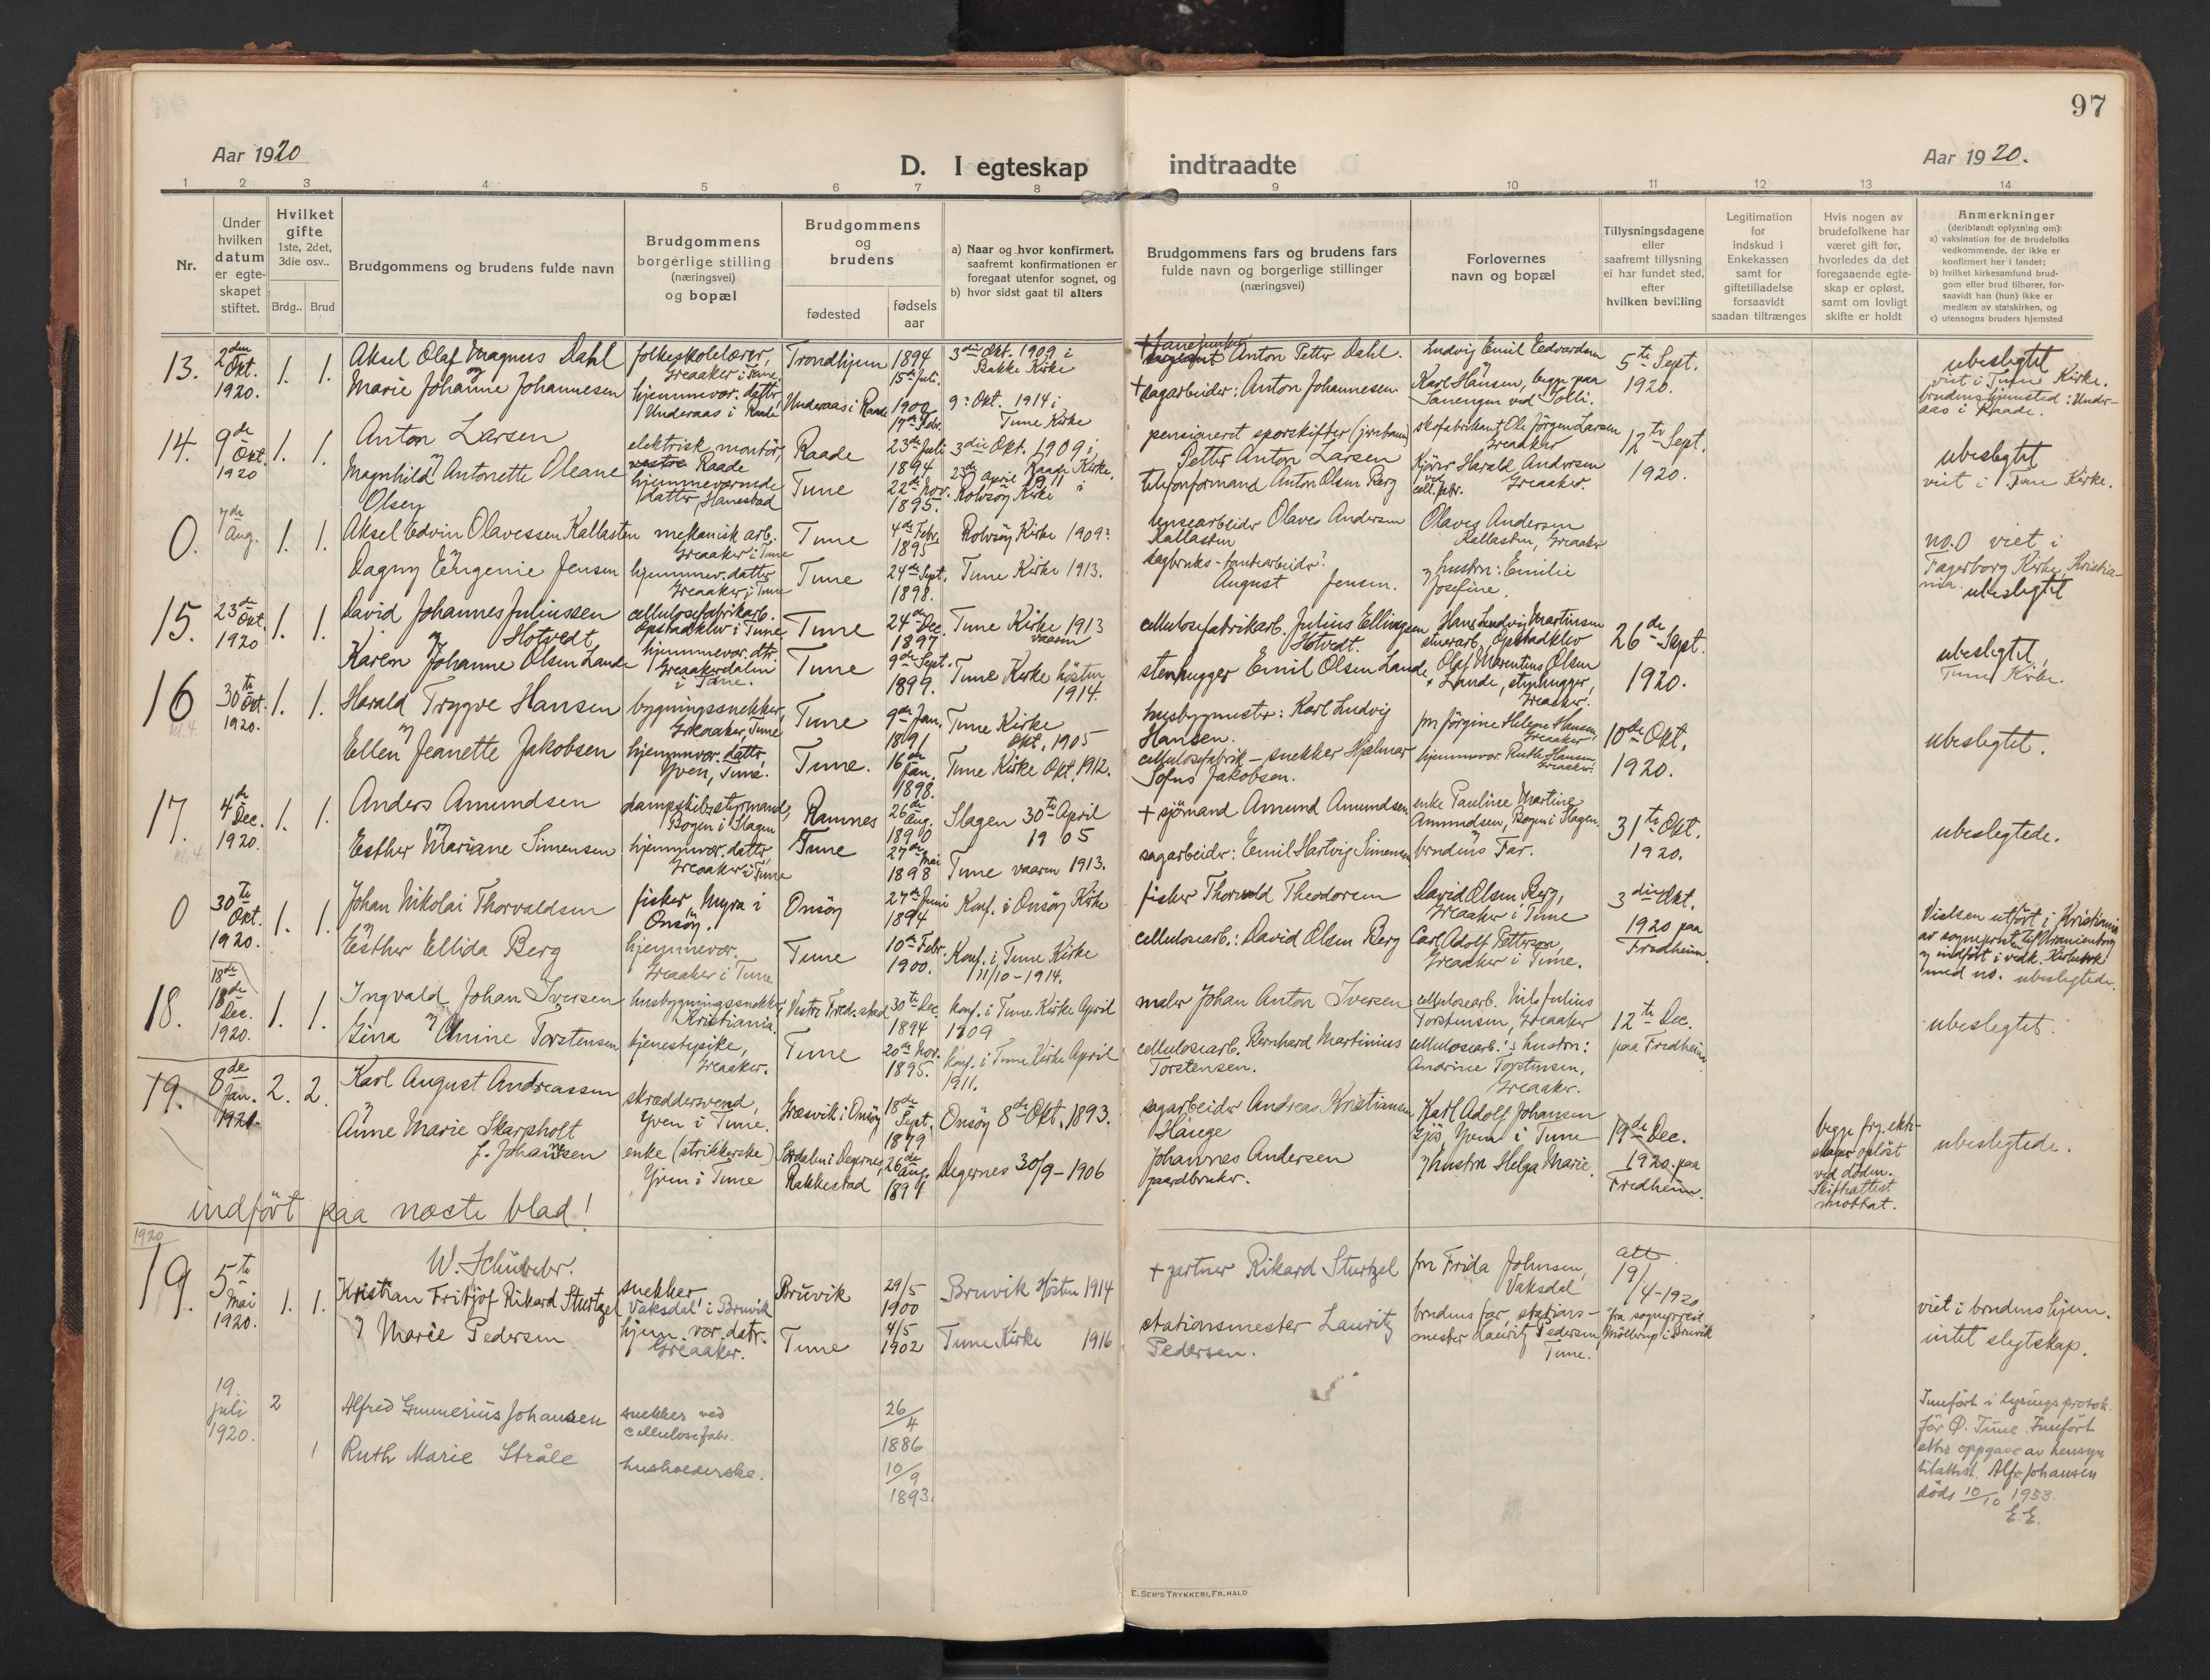 97
Aar 1920
D. I egteskap indtraadte
Aar 1920.
1 2 3 4 5 6 7 8 9 10 11 12 13 14
Nr.
Under hvilken datum er egte-skapet stiftet.
Hvilket gifte
1ste, 2det, 3die osv..
Brdg.. Brud
Brudgommens og brudens fulde navn
Brudgommens borgerlige stilling (næringsvei) og bopæl
Brudgommens og brudens
fødested
fødsels aar
a) Naar og hvor konfirmert, saafremt konfirmationen er foregaat utenfor sognet, og
b) hvor sidst gaat til alters
Brudgommens fars og brudens fars fulde navn og borgerlige stillinger (næringsvei)
Forlovernes navn og bopæl
Tillysningsdagene eller saafremt tillysning ei har fundet sted, efter hvilken bevilling
Legitimation for indskud i Enkekassen samt for giftetilladelse forsaavidt saadan tiltrænges
Hvis nogen av brudefolkene har været gift før, hvorledes da det foregaaende egte-skap er opløst, samt om lovligt skifte er holdt
Anmerkninger
(deriblandt oplysning om):
a) vaksination for de brudefolks vedkommende, der ikke er konfirmert her i landet;
b) hvilket kirkesamfund brud-gom eller brud tilhører, for-saavidt han (hun) ikke er medlem av statskirken, og
c) utensogns bruders hjemsted
13. 2den Okt. 1920. 1. 1.
Aksel Olaf Magnus Dahl
folkeskolelærer, Greaaker i Tune
Trondhjem 1894 15de Juli.
3die Okt. 1909 i Bakke Kirke
Anton Petter Dahl.
Ludvig Emil Edvardsen
5te Sept. 1920.
ubeslegtet
viet i Tune Kirke.
brudens hjemsted: Under-aas i Raade.
og Marie Johanne Johannesen
hjemmevær. datter, Underaas i Raade
Underaas i Raade 1900 17de Febr.
9: Okt. 1914 i Tune Kirke
+ sagarbeider: Anton Johannesen
Karl Hansen, begge paa Tanengen ved Solli.
14. 9de Okt. 1920 1. 1.
Anton Larsen
elektrisk montör, Raade
Raade 23de Juli 1894
3die Okt. 1909 i Raade Kirke
pensioneret sporskifter (jernbane) Petter Anton Larsen
skofabrikant Ole Jörgen Larsen Greaaker
12te Sept. 1920.
ubeslegtet
viet i Tune Kirke.
og Magnhild Antonette Oleane Olsen
hjemmeværende datter, Hanestad
Tune 22de Nov. 1895.
23de April 1911 i Rolvsöy Kirke
telefonformand Anton Olsen Berg
Kjörer Harald Andersen ved cell.fabr. Greaaker.
0. 7de Aug. 1. 1.
Aksel Edvin Olavessen Kallasten
mekanisk arb. Greaaker i Tune
Tune 4de Febr. 1895
Rolvsöy Kirke 1909?
lensearbeider Olaves Andersen Kallasten
Olaves Andersen Kallasten, Greaaker
no. 0 viet i Fagerborg Kirke, Kristia-nia. ubeslegtet
og Dagny Eugenie Jensen
hjemmev. datter Greaaker i Tune
Tune 24de Sept. 1898.
Tune Kirke 1913.
August Jensen.
og hustru: Emilie Josefine.
15. 23de Okt. 1920 1. 1.
David Johannes Juliussen Hotvedt
cellulosefabrikarb. Opstadklev i Tune
Tune 24de Dec. 1897
Tune Kirke 1913 vaaren
cellulosefabrikarb. Julius Ellingsen Hotvedt.
Hans Ludvig Martinsen stuerarb., Opstadklev
26de Sept. 1920.
ubeslegtet,
Tune Kirke.
og Karen Johanne Olsen Lande
hjemmevær. dtr. Greaakerdalen i Tune.
Tune 9de Sept. 1899.
Tune Kirke hösten 1914.
stenhugger Emil Olsen Lande
Olaf Marentius Olsen Lande, stenhugger, Greaaker.
16 30te Okt. 1920. 1. 1.
kl. 4.
Harald Trygve Hansen
bygningssnekker, Greaaker, Tune
Tune 9de Jan. 1891
Tune Kirke Okt. 1905
husbygmester: Karl Ludvig Hansen.
fru Jörgine Helene Hansen, Greaaker
10de Okt. 1920.
ubeslegtet.
og Ellen Jeanette Jakobsen
hjemmevær. datter, Yven, Tune.
Tune. 16de Jan. 1898.
Tune Kirke Okt. 1912.
cellulosefabrik-snekker Hjalmar Sofus Jakobsen.
hjemmevær. Ruth Hansen, Greaaker.
17. 4de Dec. 1920. 1. 1.
kl. 4
Anders Amundsen
dampskibsstyrmand, Bogen i Slagen
Ramnes 26de Aug. 1890
Slagen 30te April 1905
+ sjömand Amund Amundsen
enke Pauline Martine Amundsen, Bogen i Slagen.
31te Okt. 1920.
ubeslegtede.
og Esther Mariane Simensen
hjemmevær. datter Greaaker i Tune
Tune 27de Mai 1898
Tune vaaren 1913.
sagarbeider: Emil Hartvig Simensen
og brudens Far.
0 30te Okt. 1920. 1. 1.
Johan Nikolai Thorvaldsen
fisker, Myra i Onsöy.
Onsöy 27de Juni 1894
Konf. i Onsöy Kirke
fisker Thorvald Theodorsen
David Olsen Berg, Greaaker i Tune
3die Okt. 1920 paa Fredheim
Vielsen utfört i Kristiania av sogneprsten til Uranienborg og indfört i vedk. Kirkebok med no. ubeslegtede.
og Esther Ellida Berg
hjemmevær. Greaaker i Tune
Tune 10de Febr. 1900.
Konf. i Tune Kirke 11/10-1914.
cellulosearb.: David Olsen Berg
Carl Adolf Petterson, Greaaker i Tune.
18. 18de 18de Dec. 1920. 1. 1.
Ingvald Johan Iversen
husbygningssnekker, Kristiania.
Vestre Fred.stad 30te Dec. 1894
Konf. i Tune Kirke April 1909
maler Johan Anton Iversen
cellulosearb. Nils Julius Torstensen, Greaaker
12te Dec. paa Fredheim
ubeslegtet.
og Gina Amine Torstensen
tjenestepike, Greaaker.
Tune 20de Nov. 1895.
Konf. i Tune Kirke April 1911.
cellulosearb. Bernhard Martinius Torstensen.
cellulosearb.'s hustru: Andrine Torstensen, Greaaker.
19. 8de Jan. 1921. 2. 2.
Karl August Andreassen
skræddersvend, Yven i Tune.
Græsvik i Onsöy 18de Sept. 1879
Onsöy 8de Okt. 1893.
sagarbeider Andreas Kristiansen Hauge
Karl Adolf Johansen Gjös, Yven i Tune
19de Dec. 1920. paa Fredheim.
begge frg. ekte-skaper oplöst ved döden. Skifteattest mottat.
ubeslegtede.
og Anne Marie Skarpholt f. Johansen
enke (strikkerske) Yven i Tune
Degernes, Rakkestad 26de Aug. 1894
Degernes 30/9-1906
Johannes Andersen gaardbruker.
og hustru Helga Marie.
indfört paa næste blad!
1920
19. 5te Mai 1920. 1. 1.
Kristian Fritjof Rikard Sturtzel
snekker, Vaksdal i Bruvik
Bruvik 29/5 1900
Bruvik Hösten 1914
+ gartner Rikard Sturtzel
fru Frida Johnsen, Vaksdal
att. 19/4-1920 fra sogneprest Möllerup i Bruvik
viet i brudens hjem.
intet slegtskap.
og Marie Pedersen
hjem. vær. datr. Greaaker.
Tune 4/5 1902
Tune Kirke 1916
stationsmester Lauritz Pedersen.
brudens far, stations-mester Lauritz Pedersen, Tune.
19 juli 1920. 2
Alfred Gunnerius Johansen
snekker ved cellulosefabr.
26/4 1886
Innfört i lysingsprotok. för Ø. Tune. Innfört etter oppgave av hensyn til attest. Alfr. Johansen döde 10/10 1953.
E.E.
1 Ruth Marie Ståle
husholderske.
10/9 1893.
E. SEM'S TRYKKERI, FR.HALD